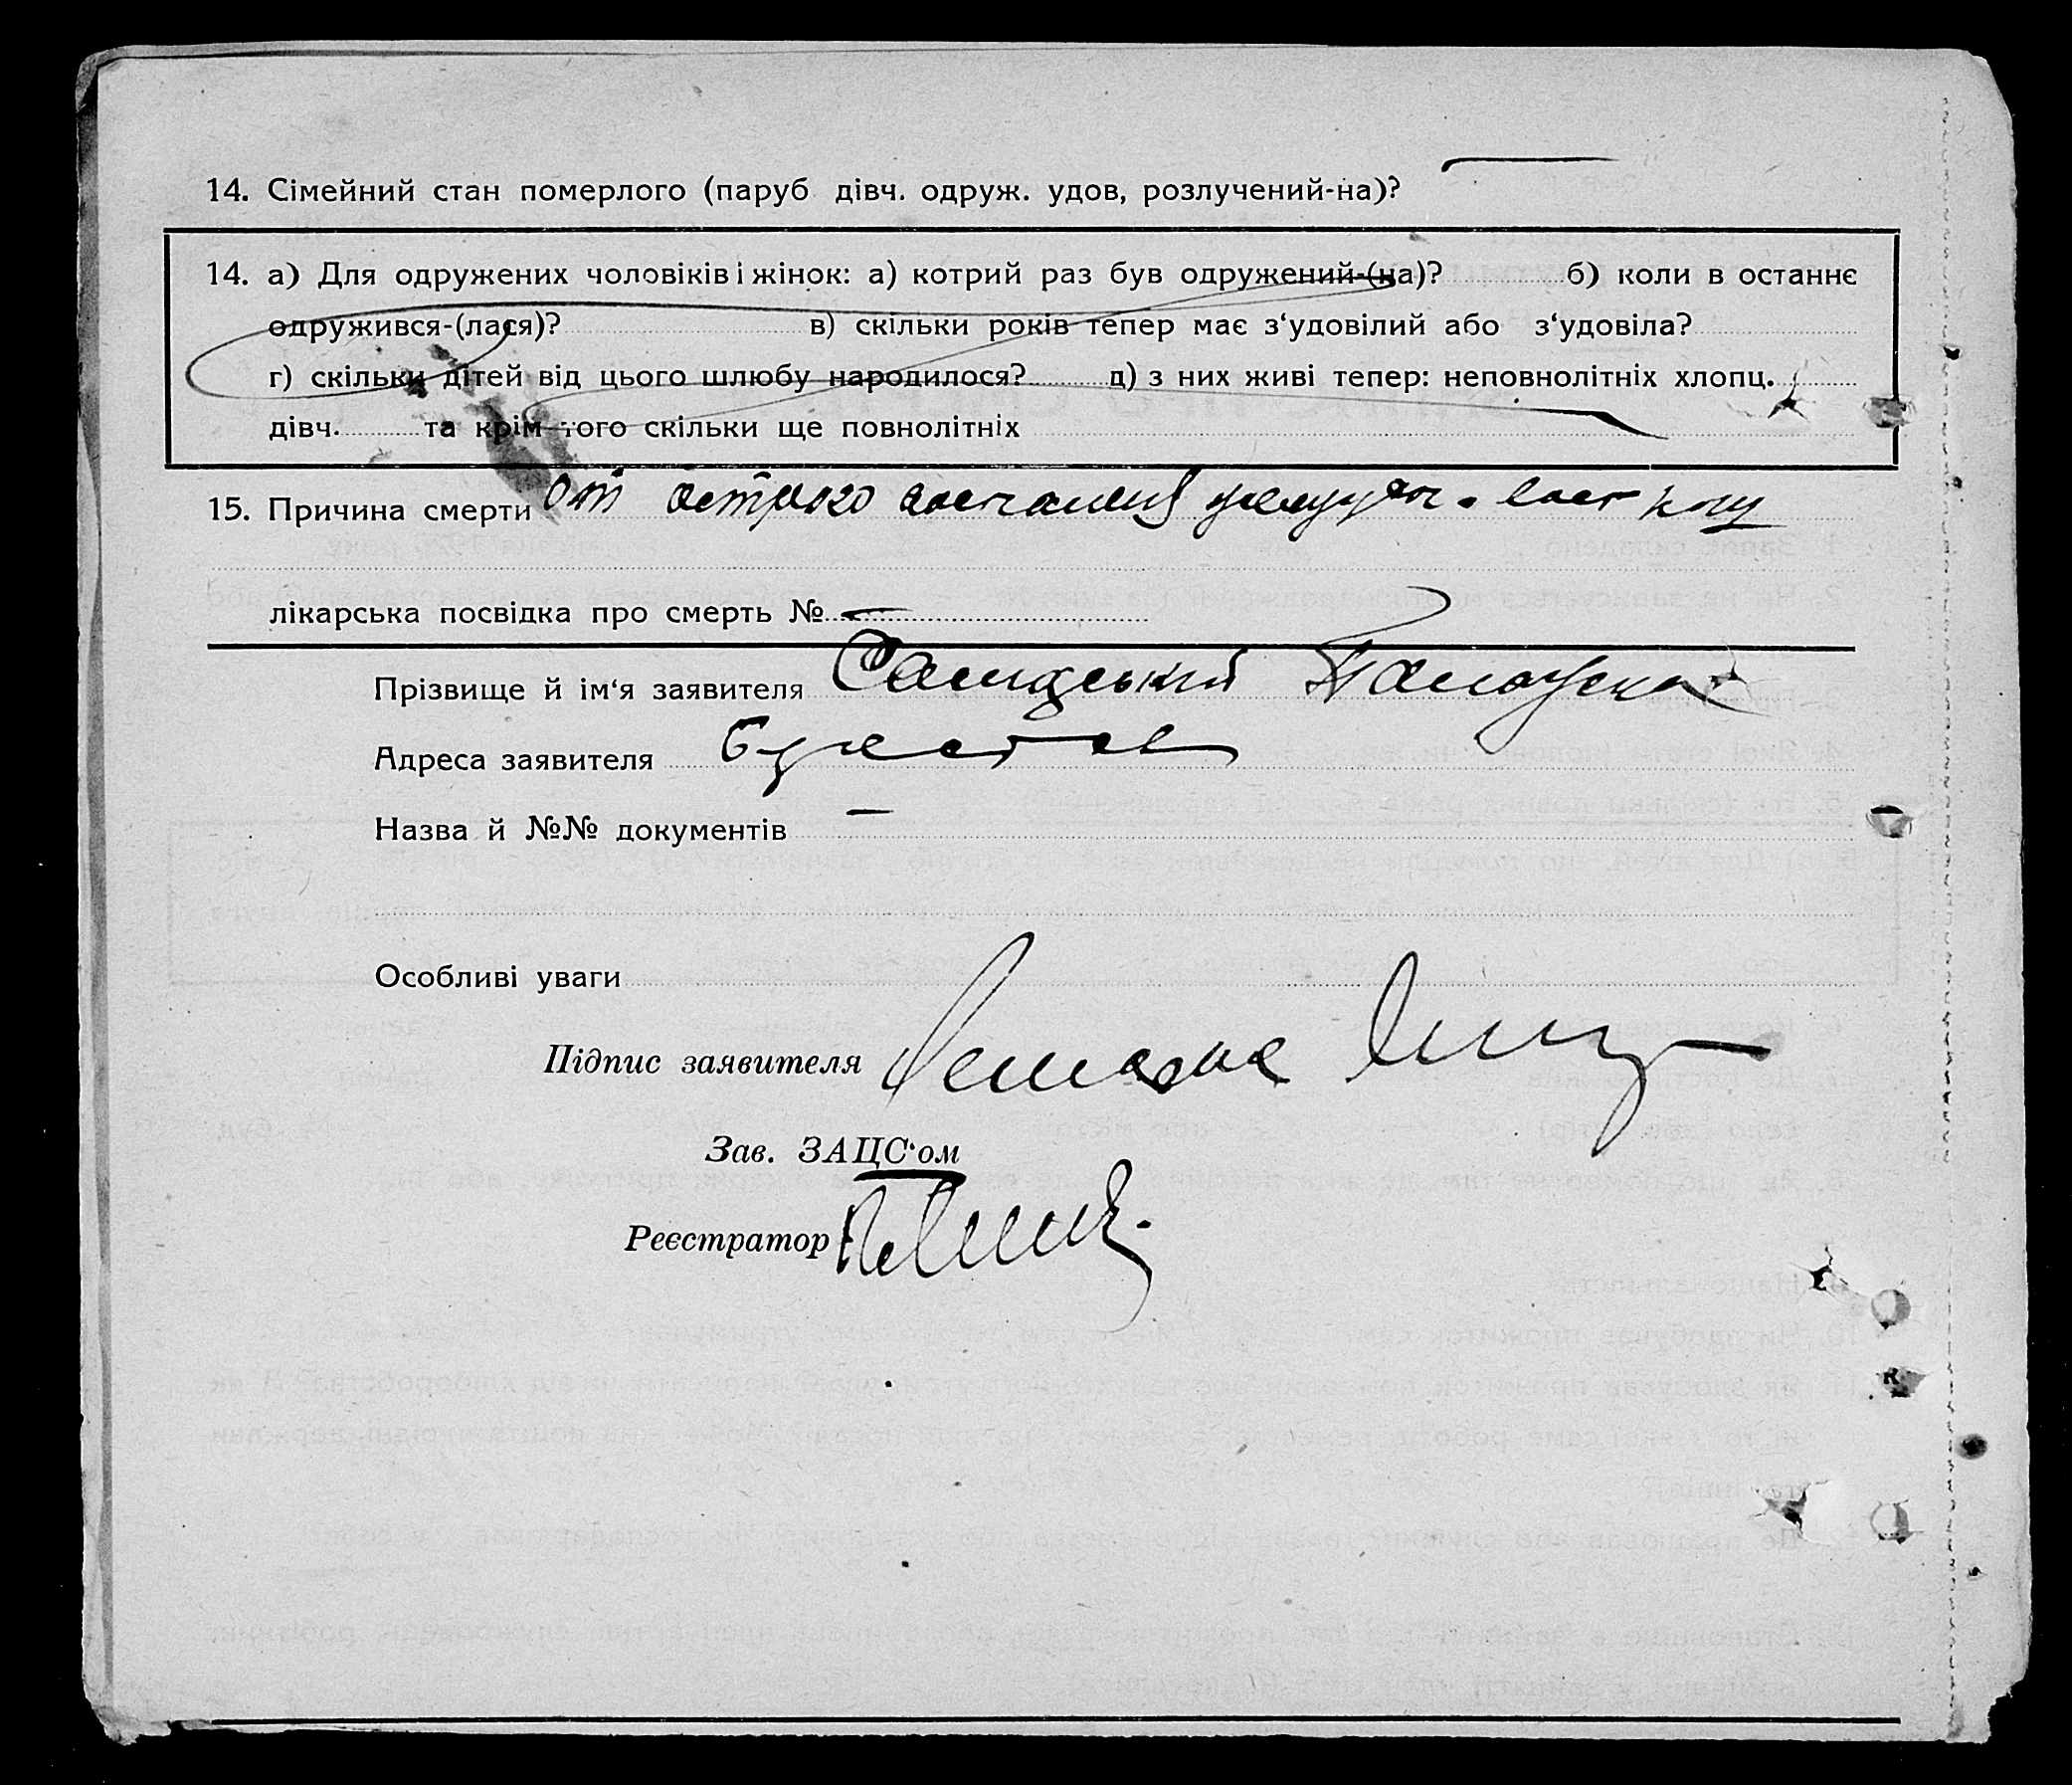 14. Сімейний стан померлого (паруб дівч. одруж. удов, розлучений-на)? —
14. а) Для одружених чоловіків і жінок: а) котрий раз був одружений-(на)? б) коли в останнє
одружився-(лася)? в) скільки років тепер має з‘удовілий або з‘удовіла?
г) скільки дітей від цього шлюбу народилося? д) з них живі тепер: неповнолітніх хлопц.
дівч. та крім того скільки ще повнолітніх
15. Причина смерти от острого
лікарська посвідка про смерть № —
Прізвище й ім‘я заявителя
Адреса заявителя
Назва й №№ документів —
Особливі уваги
Підпис заявителя
Зав. ЗАЦС‘ом
Реєстратор